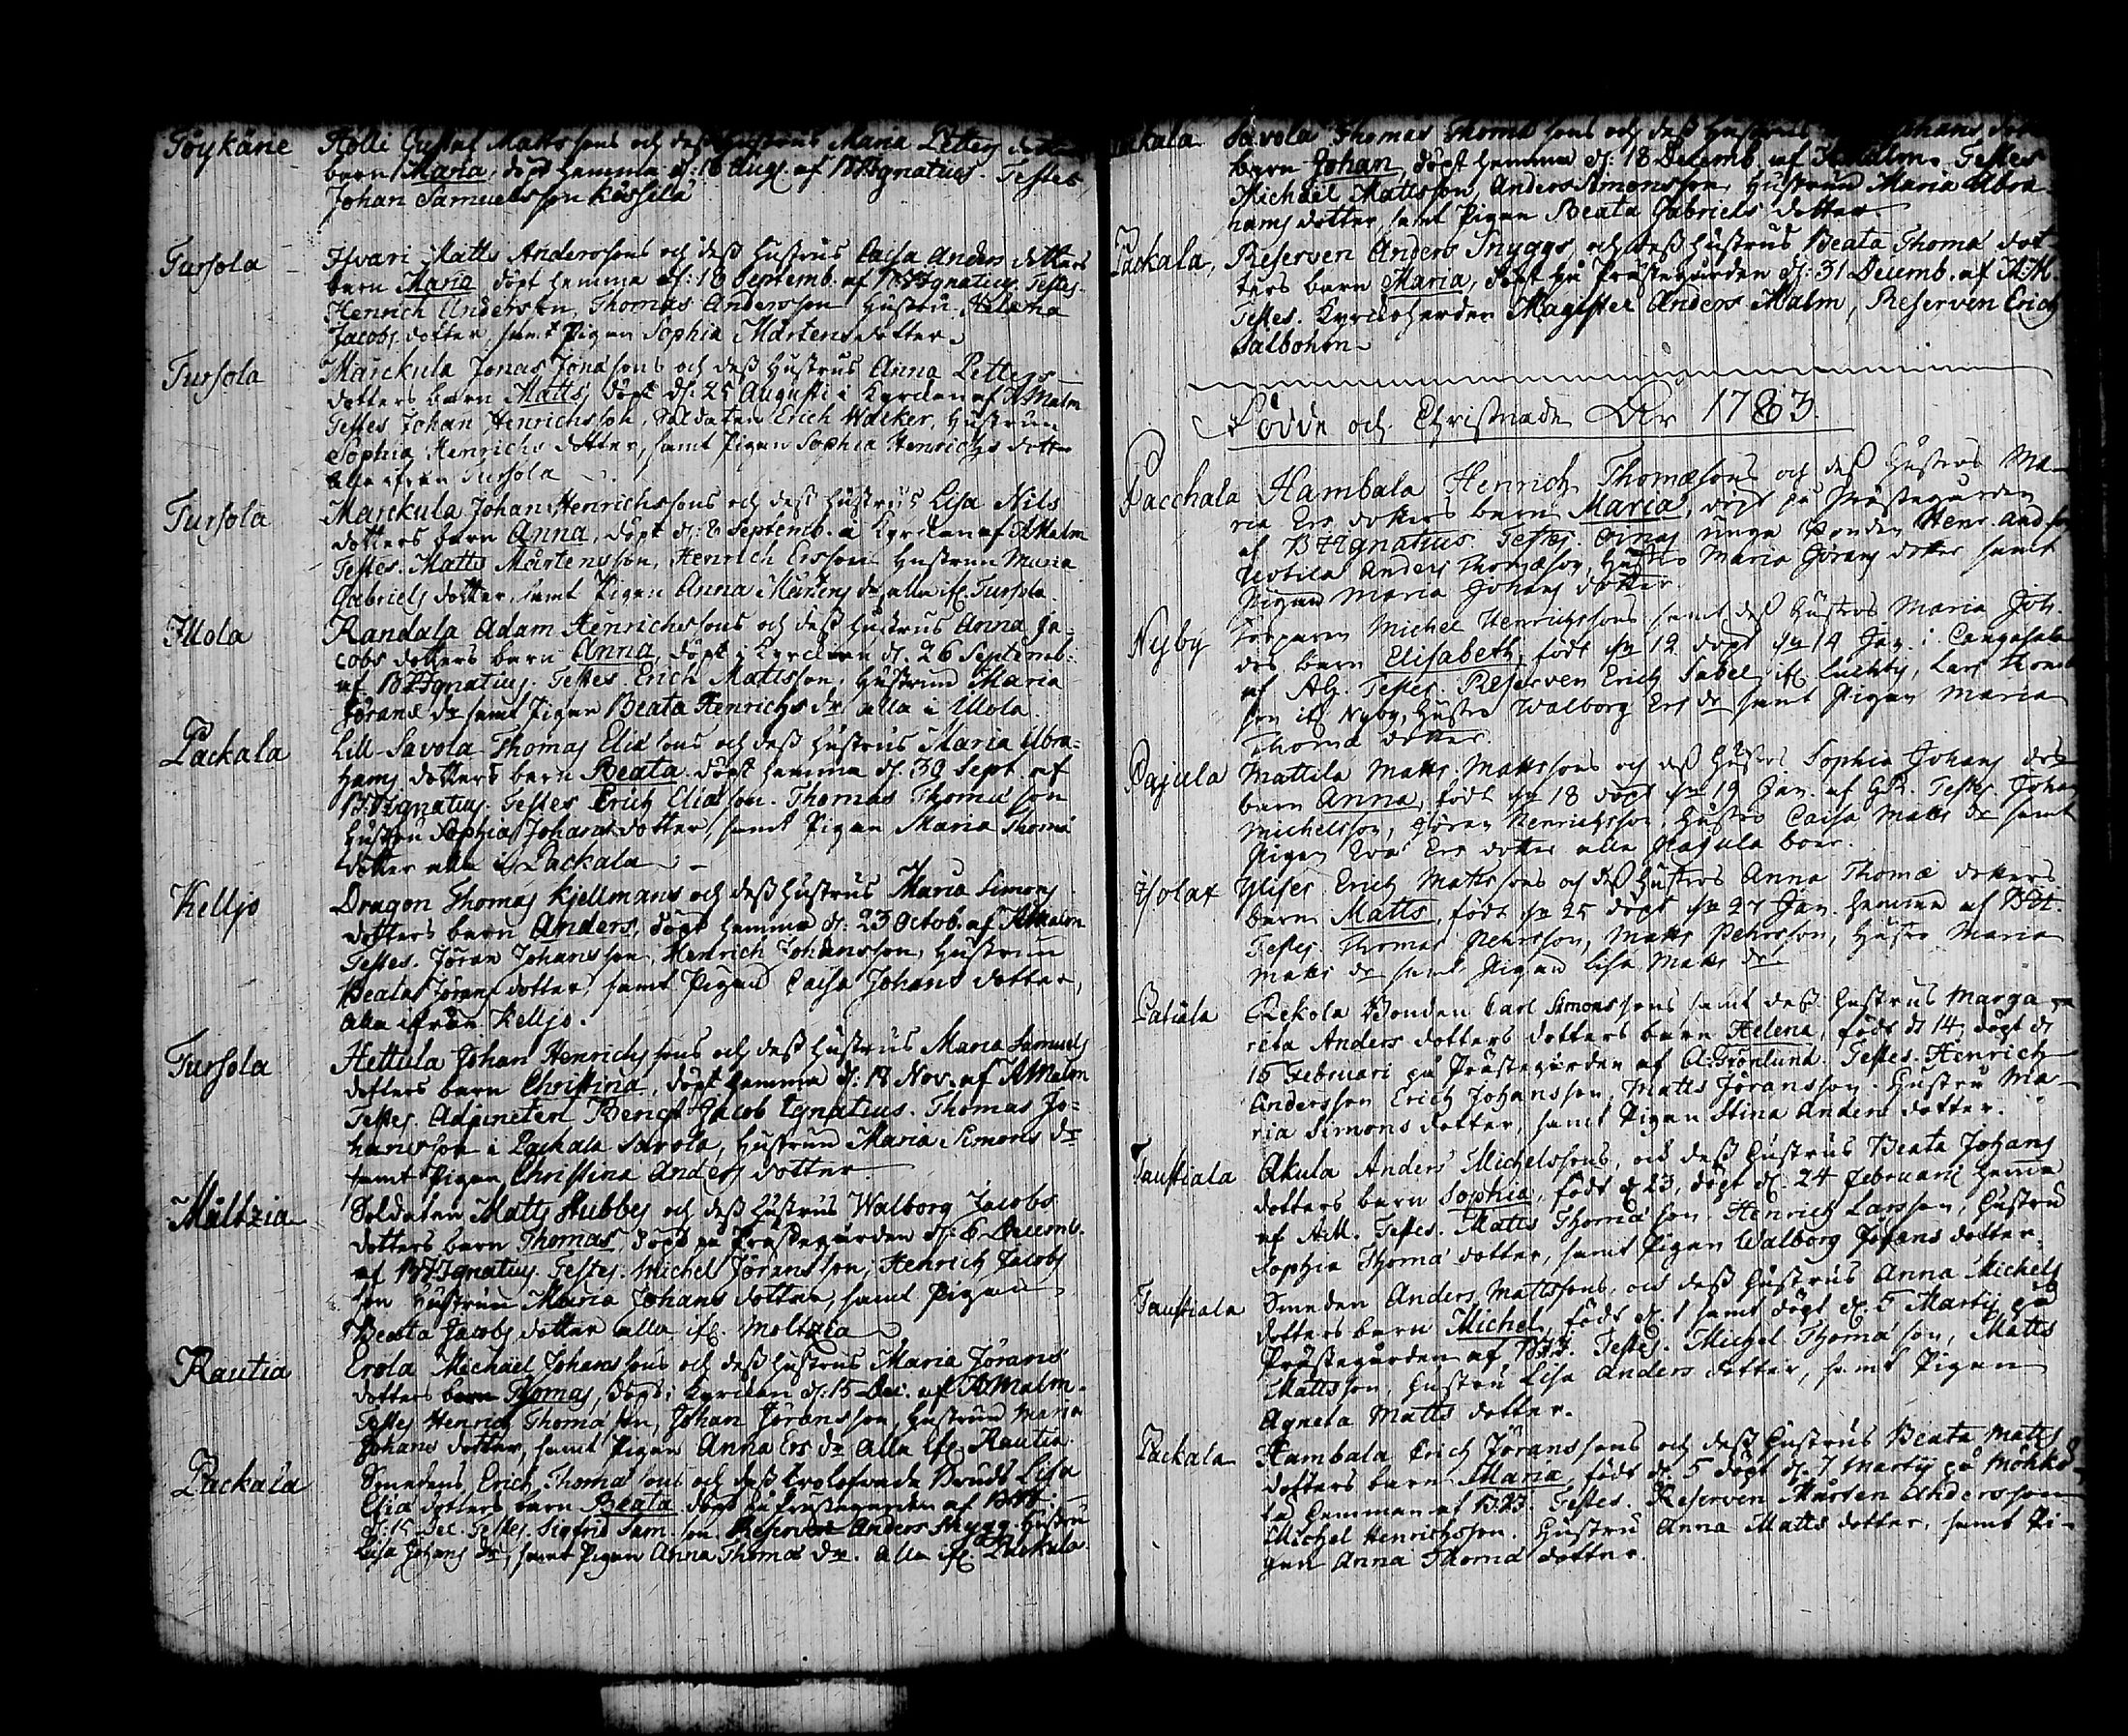 Töykäne Hölli Gustaf Mattssons och dess hustrus Maria Petters
barn Maria, döpt hemma d: 18 Aug. af BHIgnatius. Testes
Johan Samuelsson Kåssila
Tursola Ifvari Matts Anderssons och dess hustrus Caisa Anders dotters
barn Maria döpt hemma d: 18 Septemb. af BHIgnatius. Testes.
Henrich Andersson, Thomas Andersson hustru Helena
Jacobs dotter, samt Pigan Sophia Mårtens dotter
Tursola Marckula Jonas Jonæsons och dess hustrus Anna Petters
dotters barn Matts, döpt d: 25 Augusti i Kyrckan af AMalm
Testes Johan Henrichsson, Soldaten Erich Walcker, Hustrun
Sophia Henrichs dotter, samt Pigan Sophia Henrichs dotter
alla ifrån Tursola
Tursola Marckula Johan Henrichssons och dess hustrus Lisa Nils
dotters barn Anna, döpt d: 8 Septemb. i Kyrckan af AMalm
Testes. Matts Mårtensson, Henrich Ersson Hustrun Maria
Gabriels dotter, samt Pigan Anna Mårtens dr alla ifr. Tursola.
Illola Randala Adam Henrichssons och dess hustrus Anna Ja-
cobs dotters barn Anna, döpt i Kyrckan d: 26 Septemb:
af BHIgnatius. Testes. Erich Mattsson, Hustrun Maria
Jörans dr samt Pigan Beata Henrichs dr alla i Illola
Packala Lill-Savola Thomas Eliæ sons och dess hustrus Maria Abra-
hams dotters barn Beata döpt hemma d: 30 Sept af
BHIgnatius. Testes Erich Eliæ son. Thomas Thomæ son
Hustru Sophia Johans dotter, samt Pigan Maria Thomæ
dotter alla i Packala
Kelljo Dragon Thomas Kjellmans och dess hustrus Maria Simons
dotters barn Anders, döpt hemma d: 23 Octob. af AMalm
Testes. Jöran Johansson, Henrich Johansson, Hustrun
Beata Jörans dotter, samt Pigan Caisa Johans dotter,
alla ifrån Kelljo.
Tursola Hettula Johan Henrichssons och dess hustrus Maria Samuels
dotters barn Christina, döpt hemma d: 18 Nov. af AMalm
Testes. Adjuncten Bengt Jacob Ignatius. Thomas Jo-
hansson i Packala Savola, Hustrun Maria Simons dr
samt Pigan Christina Anders dotter
Måltzia Soldaten Matts Stubbes och dess hustrus Walborg Jacobs
dotters barn Thomas, döpt på Prästegården d: 6 Decemb.
af BHIgnatius. Testes. Michel Jöransson, Henrich Jacobs
son Hustrun Maria Johans dotter, samt Pigan
Beata Jacobs dotter alla ifr. Moltzia
Rautia Erola Michael Johanssons och dess hustrus Maria Jörans
dotters barn Thomas, döpt i Kyrckan d: 15 Dec. af AMalm.
Testes Henrich Thomæ son, Johan Jöransson, Hustrun Maria
Johans dotter, samt Pigan Anna Ers dr alla ifr. Rautia
Packala Smedens Erich Thomæ sons och dess trolofvade Bruds Lisa
Eliæ dotters barn Beata döpt på Prästegården af
d: 15 Dec. Testes. Sigfrid Sam. son. Reserven Anders Snygg. Hustru
Lisa Johans dr, samt Pigan Anna Thomæ dr. alla ifr. Packala.
Savola Thomas Thomæ sons och dess hustrus Johans
barn Johan, döpt hemma d: 18 Decemb. af AMalm. Testes
Michael Mattsson, Anders Simonsson, Hustrun Maria Abra-
hams dotter, samt Pigan Beata Gabriels dotter.
Packala, Reserven Anders Snyggs och dess hustrus Beata Thomæ dot-
ters barn Maria, döpt på Prästegården d: 31 Decemb. af A:M.
Testes. Kyrckoherden Magister Anders Malm, Reserven Erich
Salbohm
Födde och Christnade År 1783
Pacchala Hambala Henrich Thomæsons och dess hustrus Ma-
ria Ers dotters barn Maria, döpt på Prästegården
af BHIgnatius Testes unga Bonden Henr. And. son
Uotila Anders Thomæson, Hustru Maria Jörans dotter samt
Pigan Maria Johans dotter
Nyby Torparen Michel Henrichssons samt dess hustrus Maria Joh.
drs barn Elisabeth, född d 12 döpt d 14 Jan. i
af AG. Testes. Reserven Erich Sabel ifr. Luchby, Lars Thomæ
son ifr Nyby, hustru Walborg Ers dr samt Pigan Maria
Thomæ dotter.
Pajula Mattila Matts Mattssons och dess hustrus Sophia Johans drs
barn Anna, född d 18 döpt d 19 Jan. af GR. Testes Johan
Michelsson, Jöran Henrichsson, Hustru Caisa Matts dr samt
Pigan Eva Ers dotter alla Pajula boer.
Erich Mattssons och dess hustrus Anna Thomæ dotters
barn Matts, född d 25 döpt d 27 Jan. hemma af
Testes Thomas Pehrsson, Matts Pehrsson, Hustru Maria
Matts dr samt Pigan Lisa Matts dr
Patiala Rekola Bonden Carl Simonssons samt dess hustrus Marga-
reta Anders dotters dotters barn Helena, född d 14, döpt d
16 Februari på Prästegården af A.Grönlund. Testes. Henrich
Andersson Erich Johansson, Matts Jöransson. Hustru Ma-
ria Simons dotter, samt Pigan Stina Anders dotter.
Taustiala Akula Anders Michelssons, och dess hustrus Beata Johans
dotters barn Sophia, född d 23, döpt d. 24 februari hemma
af AM. Testes. Matts Thomæ son. Henrich Larsson, hustru
Sophia Thomæ dotter, samt Pigan Walborg Jörans dotter.
Taustiala Smeden Anders Mattssons, och dess hustrus Anna Michels
dotters barn Michel, född d. 1 samt döpt d. 5 Martij på
Prästegården af Testes. Michel Thomæ son, Matts
Mattsson, hustru Lisa Anders dotter, samt Pigan
Agneta Matts dotter.
Packala Hambala Erich Jöranssons och dess hustrus Beata Matts
dotters barn Maria, född d. 5 döpt d. 7 Martij på
af Testes. Reserven Mårten Andersson
Michel Henrichsson. Hustru Anna Matts dotter, samt Pi-
gan Anna Thomæ dotter.